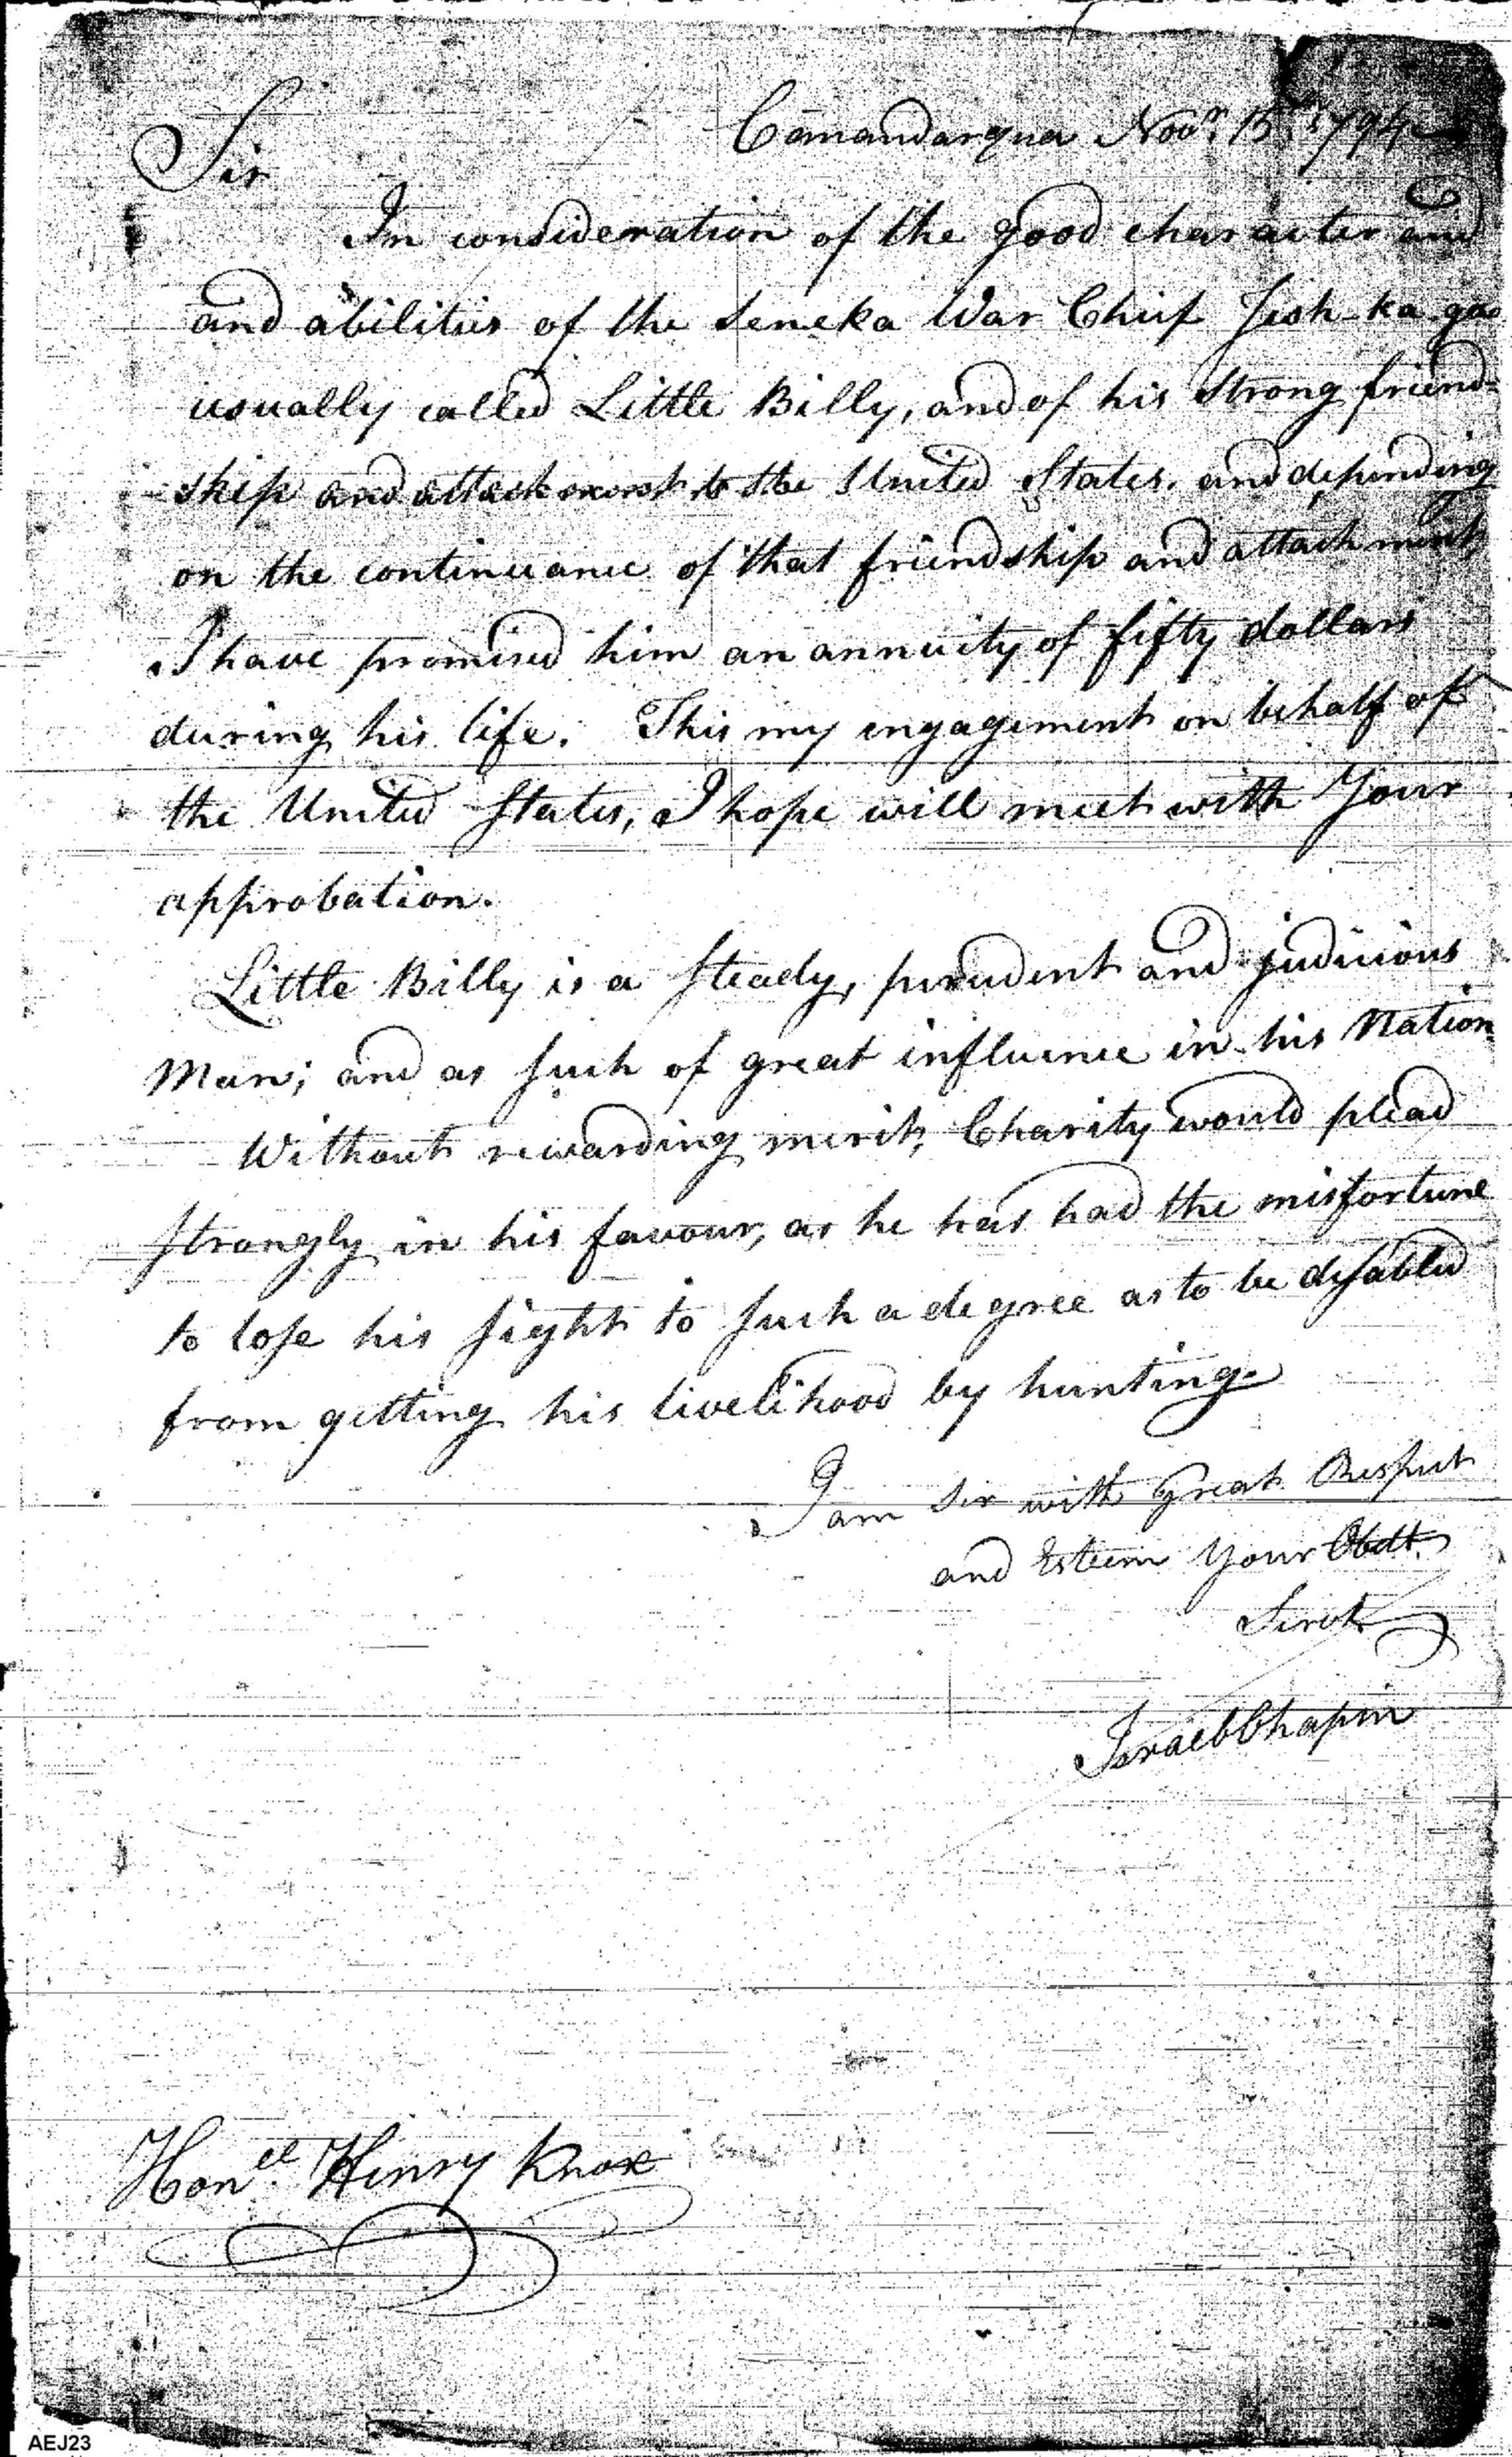 Canandarqua Novr. 15th 1794
Sir
In consideration of the good character and
and abilities of the Seneka War Chief Jish-ka-gao
usually called Little Billy, and of his strong friend-
ship and attachment to the United States, and depending
on the continuance of that friendship and attachment,
I have promised him an annuity of fifty dollars
during his life. This my engagement on behalf of
the United States, I hope will meet with Your
approbation.
Little Billy is a steady, prudent and judicious
Man; and as such of great influence in his Nation
Without rewarding merit, Charity would plead
strongly in his favour, as he has had the misfortune
to lose his sight to such a degree as to be disabled
from getting his livelihood by hunting.
I am Sir with Great Respect
and Esteem Your Obdt.
Servt.
Israel Chapin
Honll. Henry Knox
AEJ23